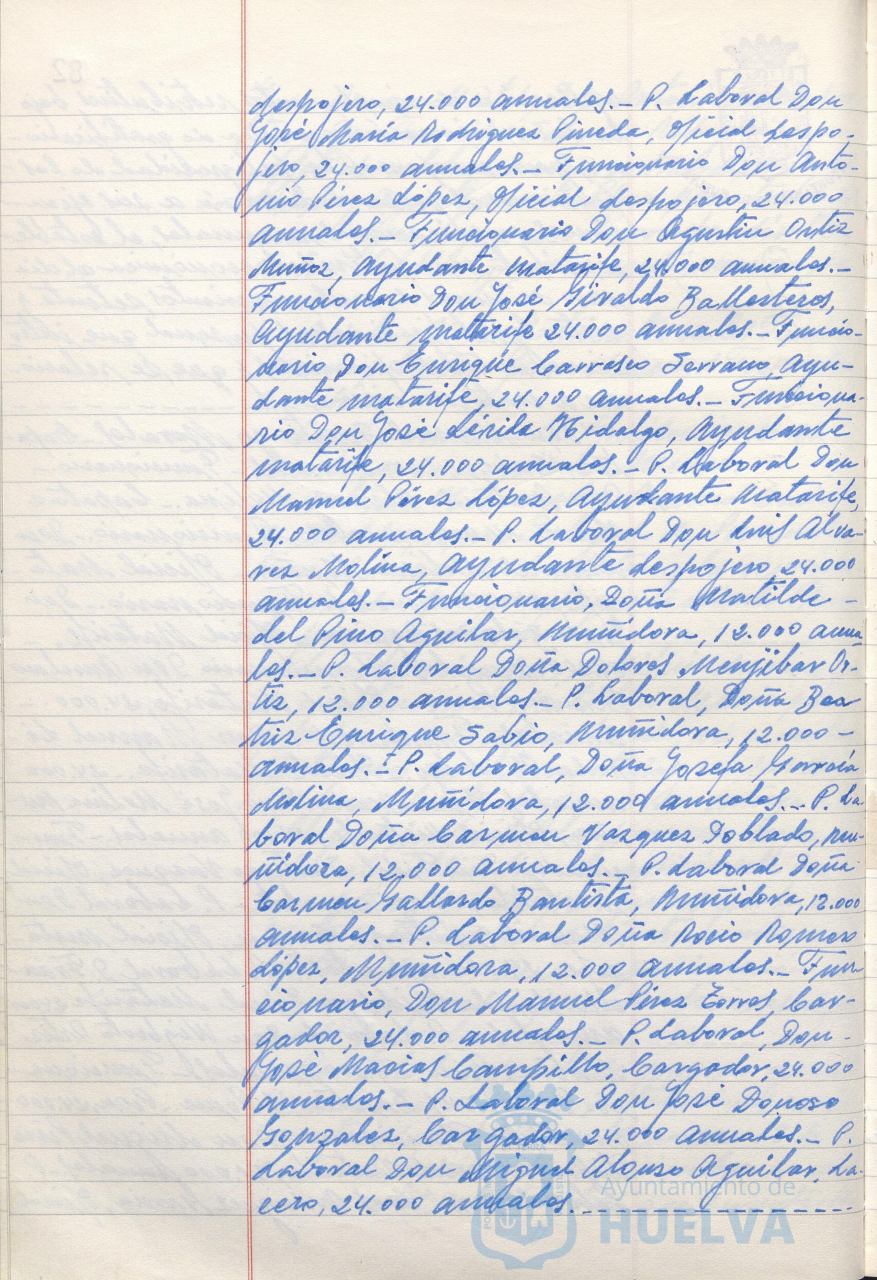 despojero, 24.000 annales.- P. Laboral Don
José María Rodríguez Pineda, Oficial despo-
jero, 24.000 annales.- Funcionario Don Anto-
nio Pérez López, Oficial despojero, 24.000
annales.- Funcionario Don Agustín Ortiz
Muñoz, Ayudante matarife, 24.000 annales.-
Funcionario Don José Giraldo Ballesteros,
Ayudante matarife 24.000 annales.- Funcio-
nario Don Enrique Carrasco Serrano, Ayu-
dante matarife, 24.000 annales.- Funciona-
rio Don José Lérida Hidalgo, Ayudante
matarife, 24.000 annales.- P. Laboral Don
Manuel Pérez López, Ayudante Matarife,
24.000 annales.- P. Laboral Don Luis Alva-
rez Molina, Ayudante despojero 24.000
annales.- Funcionario, Doña Matilde -
del Pino Aguilar, Muñidora, 12.000 anna
les.- P. Laboral Doña Dolores Menjibar Or-
tiz, 12.000 annales.- P. Laboral, Doña Bea
triz Enrique Sabio, Muñidora, 12.000 -
annales.- P. Laboral, Doña Josefa García
Molina, Muñidora, 12.000 annales.- P. La
boral Doña Carmen Vazquez Doblado, mu-
ñidora, 12.000 annales.- P. Laboral Doña
Carmen Gallardo Bautista, Muñidora, 12.000
annales.- P. Laboral Doña Rocio Romero
López, Muñidora, 12.000 annales.- Fun-
cionario, Don Manuel Pérez Torres, Car-
gador, 24.000 annales.- P. Laboral, Don -
José Macias Campillo, Cargador, 24.000
annales.- P. Laboral Don José Donoso
Gonzalez, Cargador, 24.000 annales.- P.
Laboral Don Miguel Alonso Aguilar, La-
cero, 24.000 annales.- - - - - - - - - -
Ayuntamiento de
HUELVA